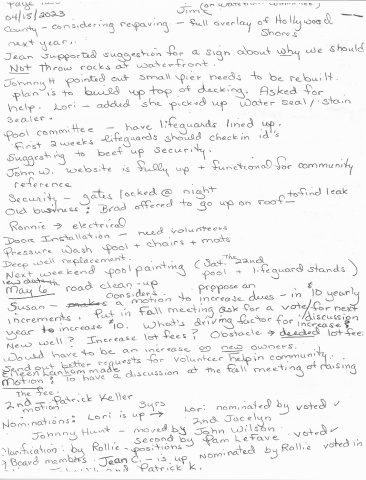 Page
04/15/2023 Jim K (or water committee)
County - considering repaving - full overlay of Hollywood
next year.. Shores
Jean supported suggestion for a sign about why we should
Not throw rocks at waterfront.
Johnny H pointed out small pier needs to be rebuilt.
plan is to build up top of decking. Asked for
help. Lori - added she picked up water seal/stain
sealer.
Pool committee - have lifeguards lined up.
First 2 weeks lifeguards should check in id's
Suggesting to beef up security.
John W. website is fully up + functional for community
reference
Security - gates locked @ night
Old business: Brad offered to go up on roof to find leak
Ronnie → electrical
Door Installation - need volunteers
Pressure Wash pool + chairs + mats
Deep well replacement.
Next weekend pool painting (Sat. The 22nd
pool + lifeguard stands)
new date is
May 6 road clean-up
Consider propose an
Susan - makes a motion to increase dues - in $10 yearly
increments. Put in Fall meeting ask for a vote/discussion for next
year to increase $10. What's driving factor for increase?
New well? Increase lot fees? Obstacle → deeded lot fee
Would have to be an increase on new owners.
Send out better requests for volunteer help in community.
Eileen Lankam made
Motion: To have a discussion at the fall meeting of raising
the fee.
2nd motion - Patrick Keller
Nominations: Lori is up → 3yrs Lori nominated by voted ✓
2nd Jocelyn
Johnny Hunt - moved by John Wilson
second by Pam LeFave voted ✓
Clarification: by Rollie - positions
9 Board members. Jean C. - is up nominated by Rollie voted in
Patrick K.